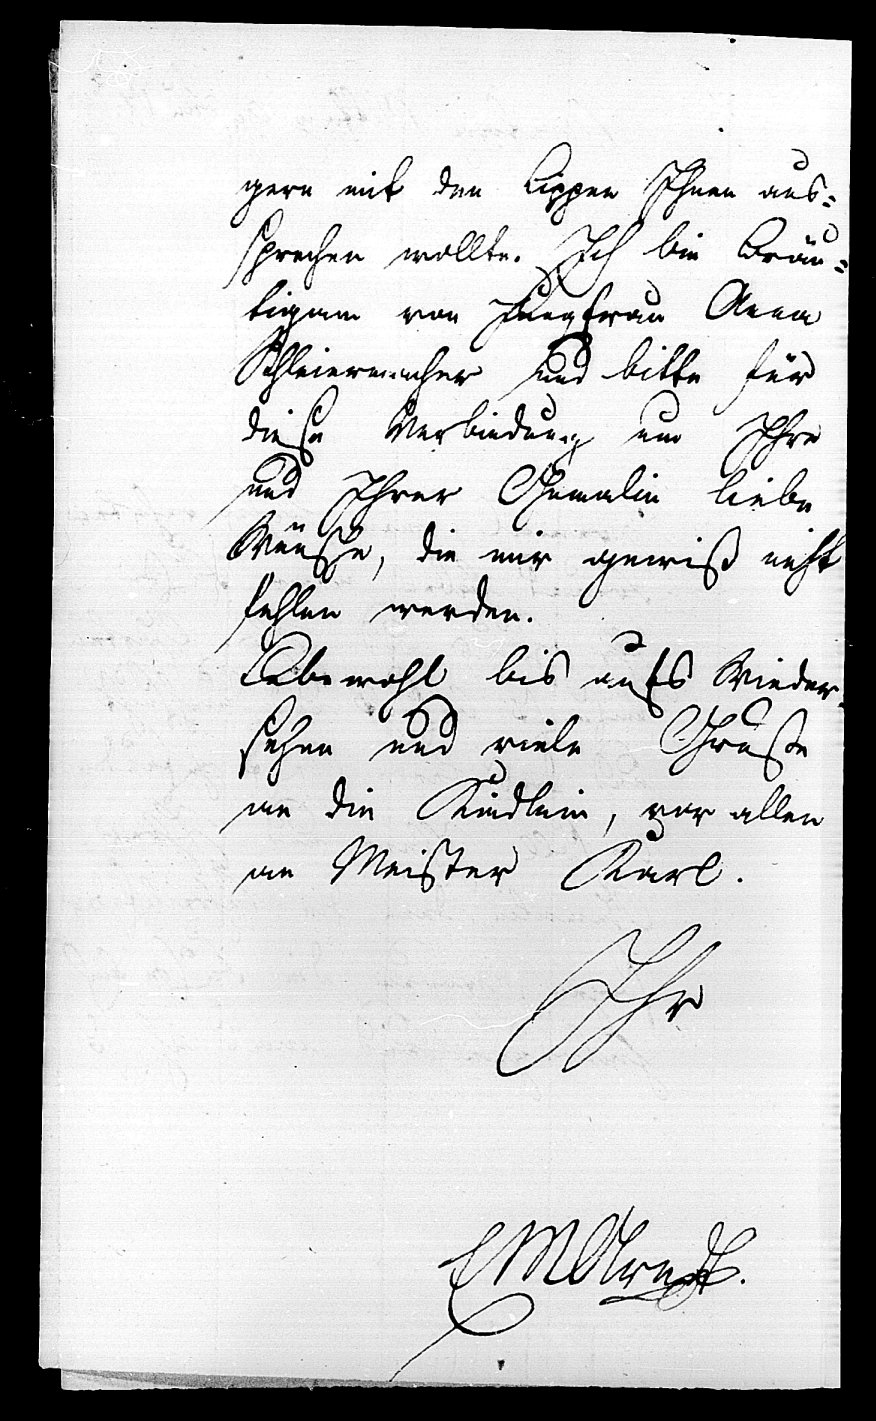 gern mit den Lippen Ihnen aus=
sprechen wollte. Ich bin Bräu=
tigam von Jungfrau Anna
Schleiermacher und bitte für
diese Verbindung um Ihre
und Ihrer Gemalin liebe
Wünsche, die mir gewiß nicht
fehlen werden.
Lebewohl bis aufs Wieder
sehen und viele Grüße
an die Kindlein, vor allen
an Meister Karl.
Ihr
EMArndt.